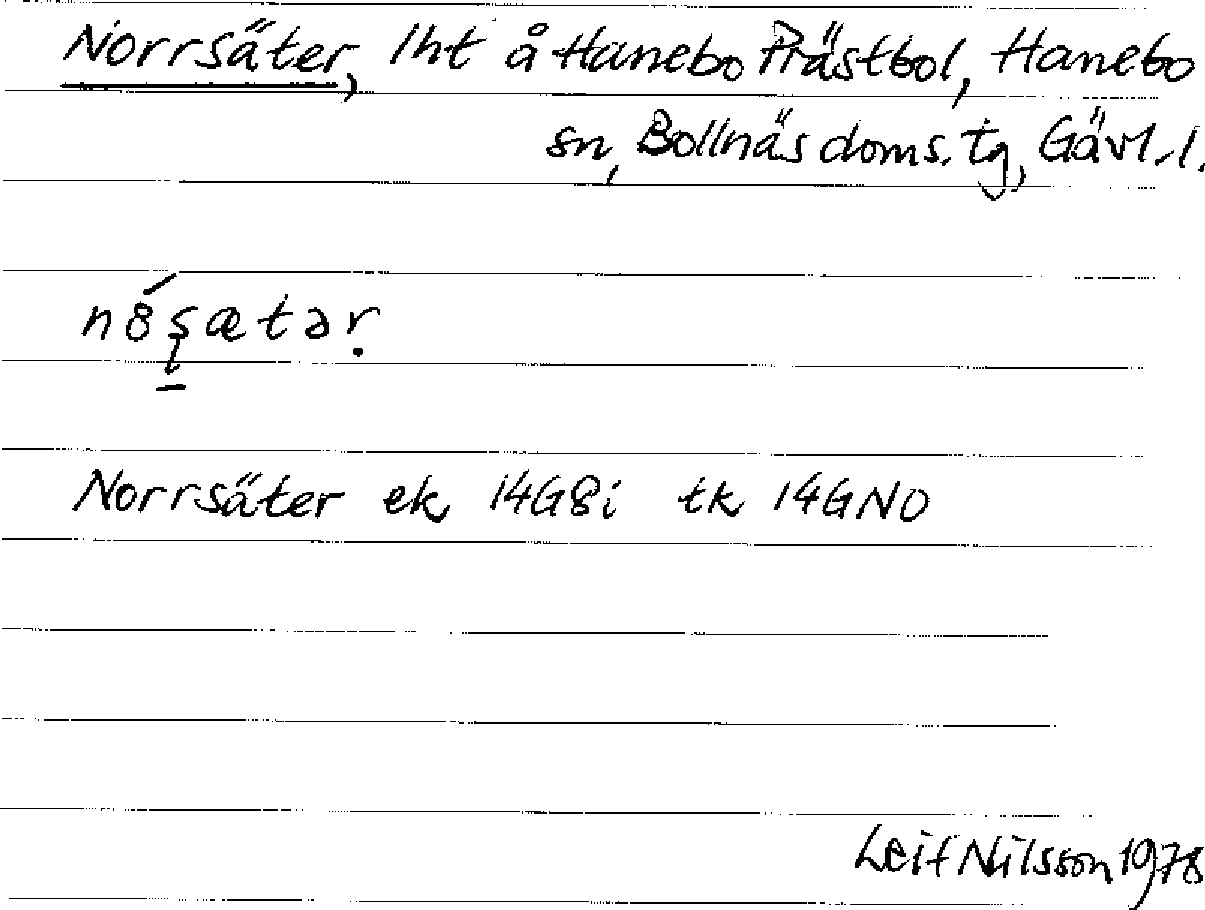 Norrsäter, lht å Hanebo Prästbol, Hanebo
sn, Bollnäs doms. tg, Gävl. l.
n8́ʂætəṛ
Norrsäter ek 14G8i tk 14GNO
Leif Nilsson 1978